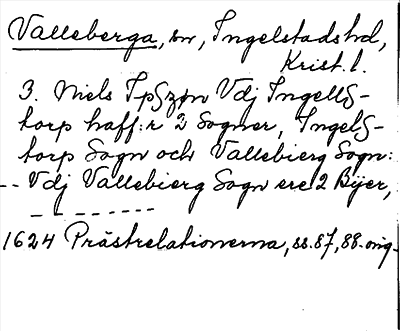 Valleberga, sn, Ingelstads hd,
Krist. l.
3. Niels Ip§zøn Vdj Ingell§-
torp haff:r 2 Sogner, Ingel§-
torp Sogn och Vallebierg Sogn:
-- Vdj Vallebierg Sogn ere 2 Bÿer,
-- -----
1624 Prästrelationerna, ss. 87, 88. orig.